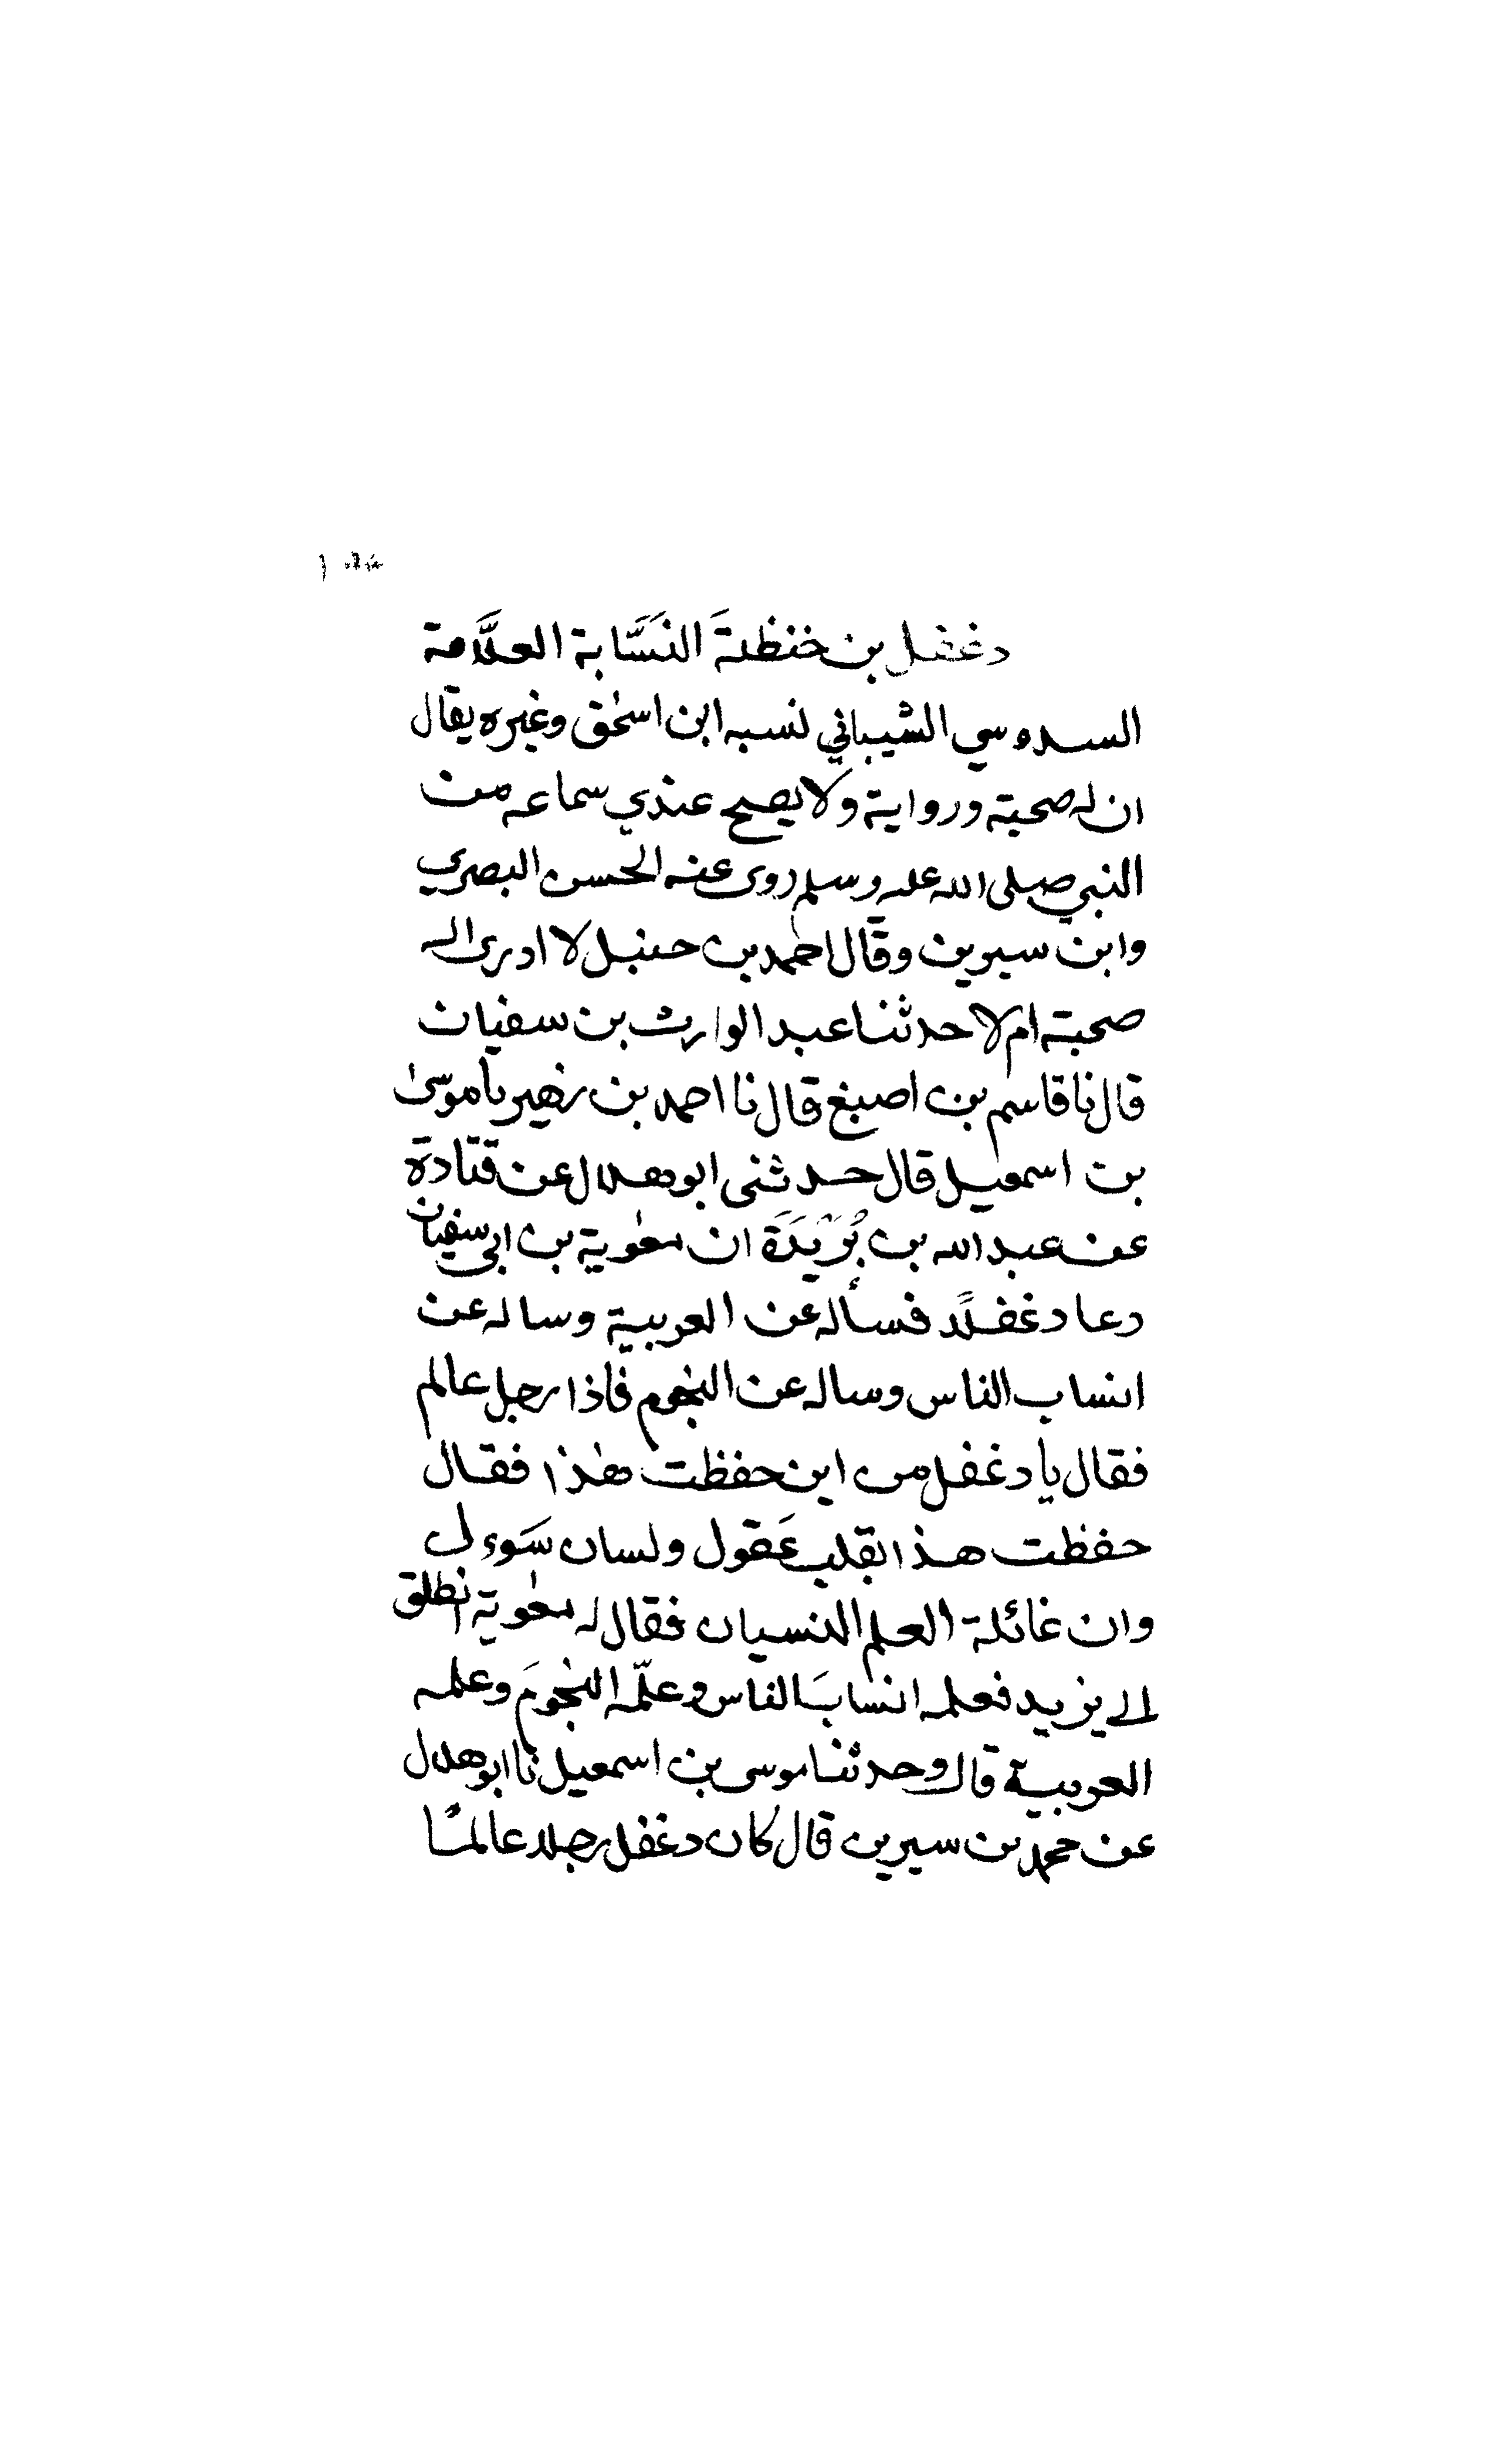 دغفل بن حنظلةَ النَسَّابة العلَّامة
السدوسي الشيباني نسبه ابن اسحٰق وغيره يقال
ان له صحبة ورواية ولا يصح عندي سماعه من
النبي صلى الله عليه وسلم روى عنه الحسن البصري
وابن سيرين وقال احمد بن حنبل لا ادرى اله
صحبة ام لا حدثنا عبد الوارث بن سفيان
قال نا قاسم بن اصبغ قال نا احمد بن زهير نا موسىٰ
بن اسمعيل قال حدثنى ابو هلال عن قتادة
عن عبد الله بن بُرَيْدَةَ ان معٰوية بن ابي سفيان
دعا دغفلًا فسأله عن العربية وساله عن
انساب الناس وساله عن النجوم فاذا رجل عالم
فقال يا دغفل من اين حفظت هٰذا فقال
حفظت هذا بقلب عَقول ولسان سَوءل
وان غائلة العلم النسيان فقال له معٰوية انطلق
الى يزيد فعلمه انسابَ الناس وعلّمه النجومَ وعلمه
العربية قال وحدثنا موسى بن اسمعيل نا ابو هلال
عن محمد بن سيرين قال كان دغفل رجلا عالمًا